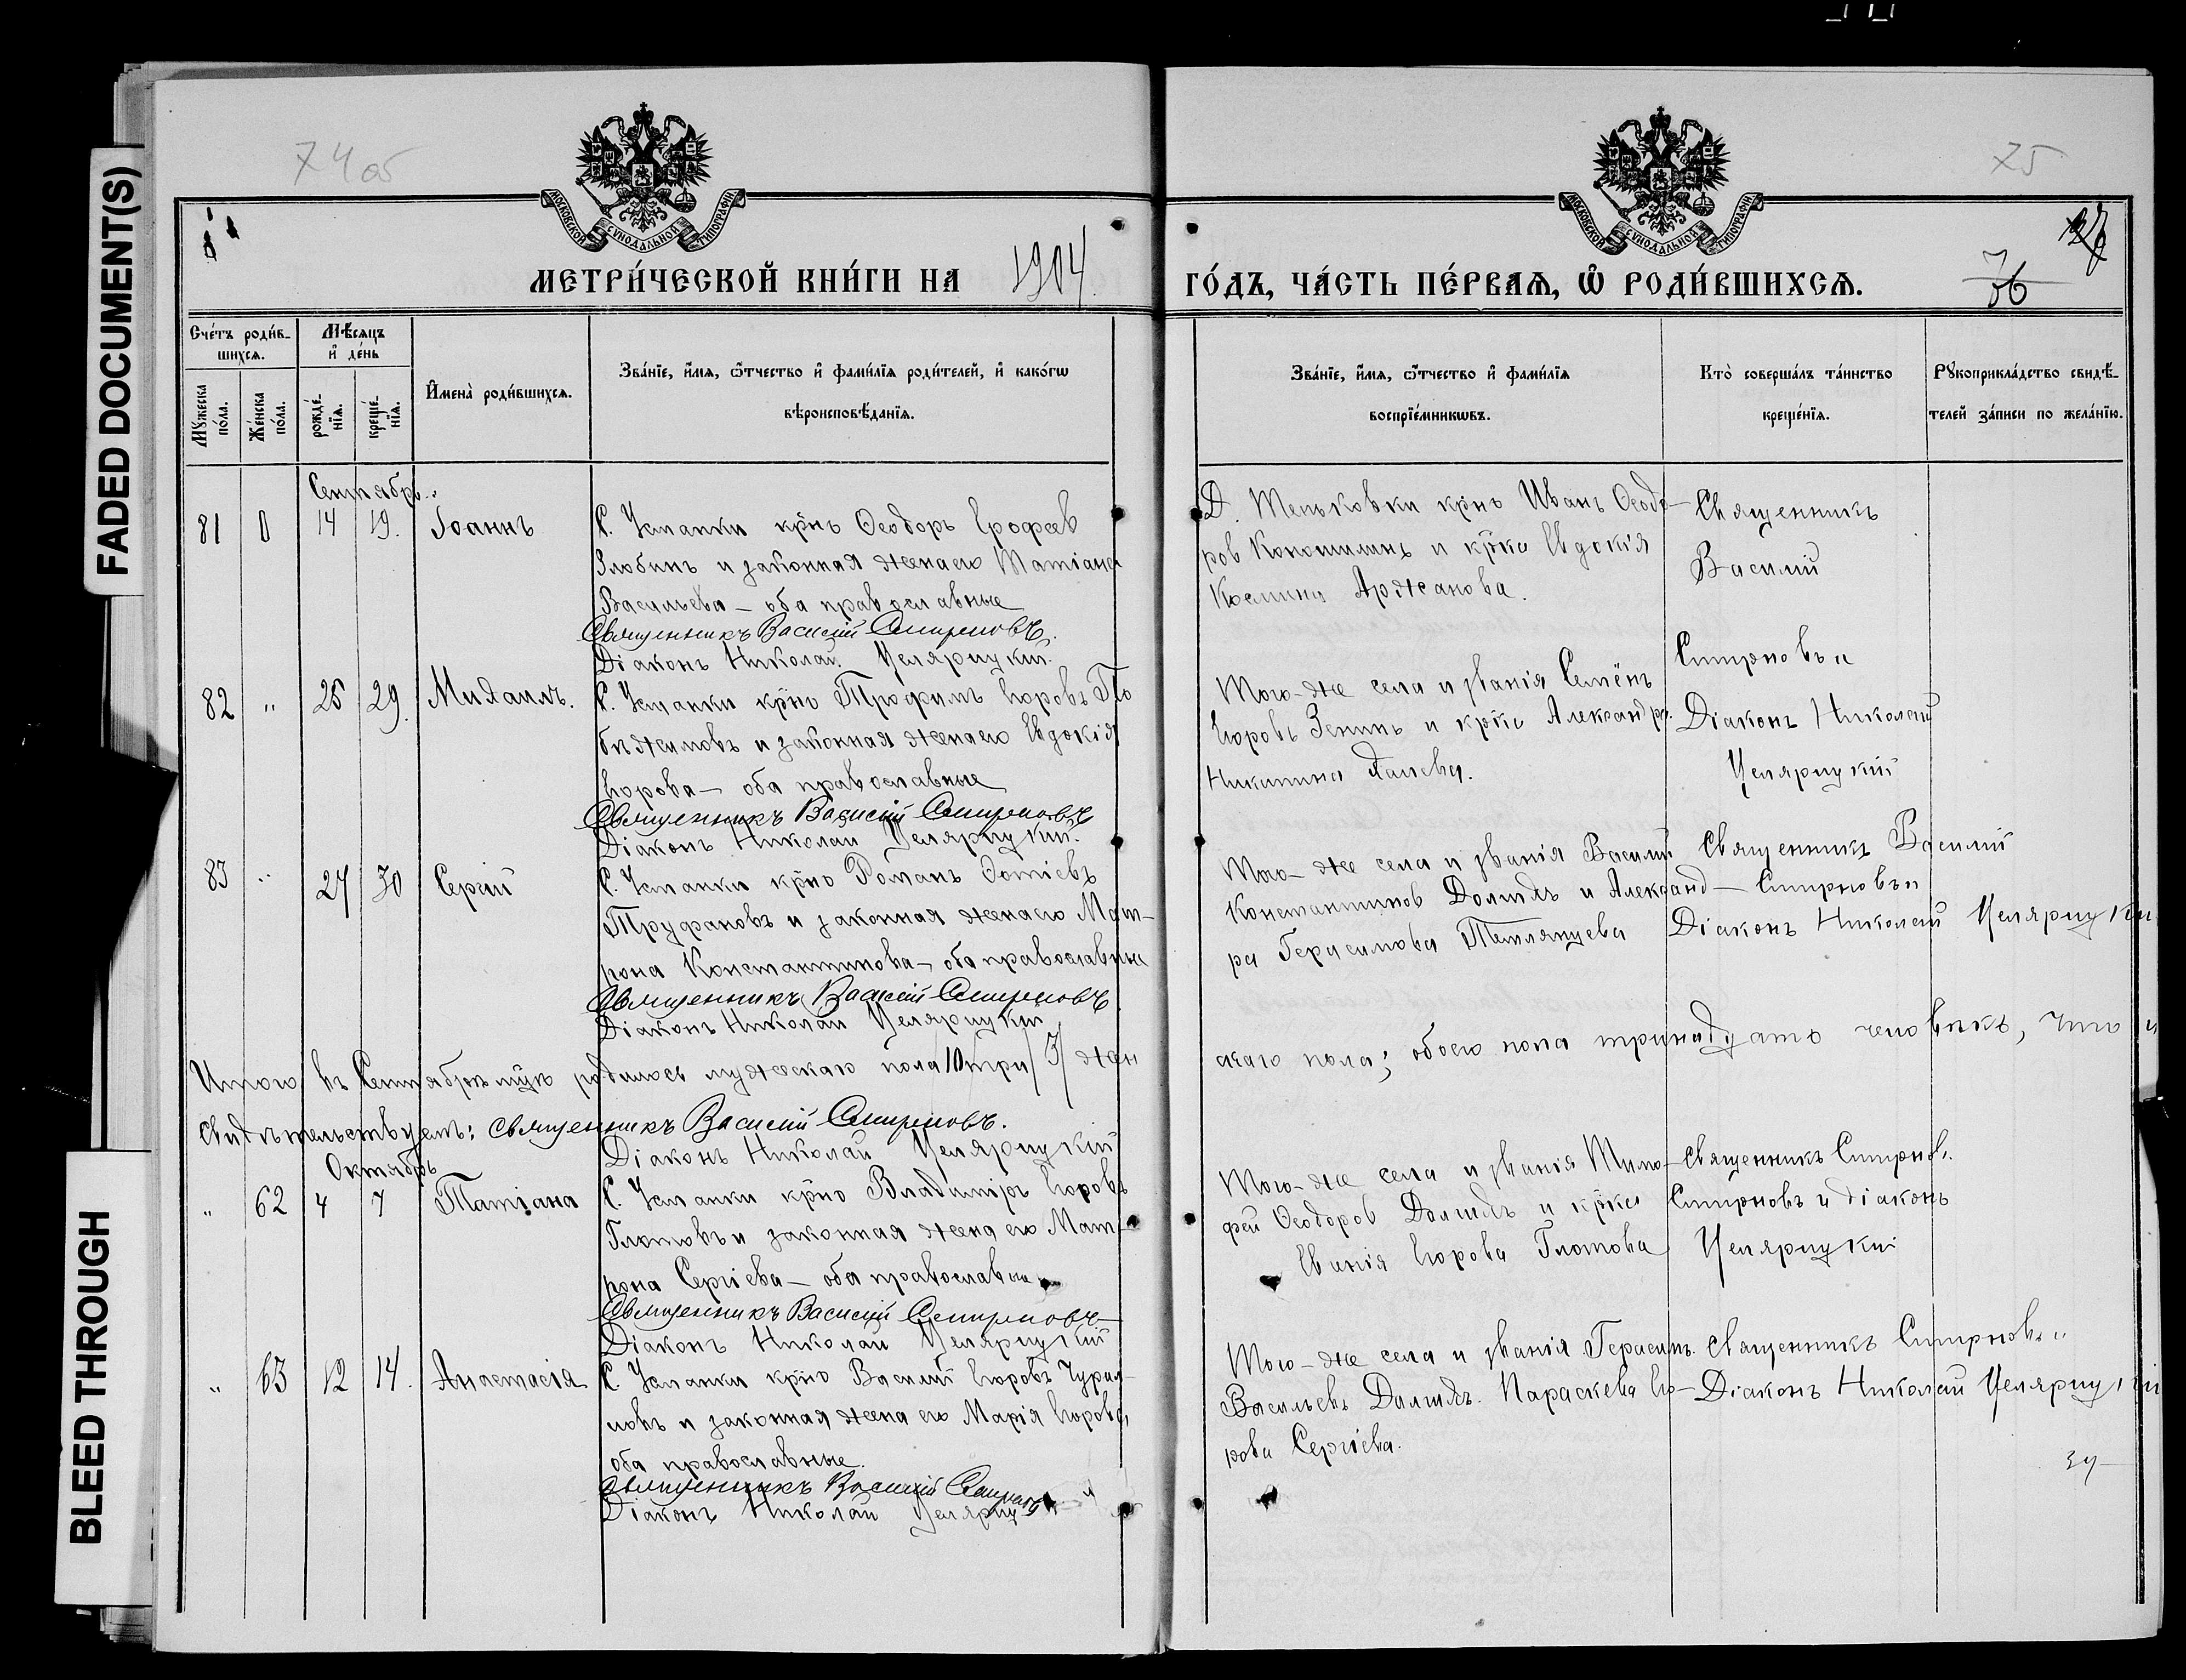 FADED DOCUMENT(S)
BLEED THROUGH
74 об
75
МОСКОВСКОЙ СѴНОДАЛЬНОЙ ТИПОГРАФІИ
МОСКОВСКОЙ СѴНОДАЛЬНОЙ ТИПОГРАФІИ
МЕТРИ́ЧЕСКОЙ КНИ́ГИ НА 1904
ГО́ДЪ, ЧА́СТЬ ПЕ́РВАѦ, Ѽ РОДИ́ВШИХСѦ.
Сче́тъ роди́в-
шихсѧ.
Мꙋ́жеска по́ла.
Же́нска по́ла.
Мѣ́сѧцъ
и҆ де́нь
рожде́-
нїѧ.
креще́-
нїѧ.
И҆мена̀ роди́вшихсѧ.
Зва́нїе, и҆́мѧ, ѻ҆́тчество и҆ фами́лїѧ роди́телей, и҆ како́гѡ
вѣроисповѣ́данїѧ.
Зва́нїе, и҆́мѧ, ѻ҆́тчество и҆ фами́лїѧ
воспрїе́мникѡвъ.
Кто̀ соверша́лъ та́инство
креще́нїѧ.
Рꙋкоприкла́дство свидѣ́-
телей за́писи по жела́нїю.
Сентябрь
81 0 14 19. Іоаннъ
С. Усманки крнъ Ѳеодоръ Ерофеев
Злобинъ и законная жена его Татіана
Васильева — оба православные
Священникъ Василій Смирновъ.
Діаконъ Николай Целярицкій.
Д. Меньковки крнъ Иванъ Ѳеодо-
ров Коношилинъ и крка Евдокія
Космина Аржанова.
Священникъ
Василій
Смирновъ и
Діаконъ Николай
Целярицкій
82 " 25 29. Михаилъ.
С. Усманки крнъ Трофимъ Егоровъ По
бѣжимовъ и законная жена его Евдокія
Егорова — оба православные
Священникъ Василій Смирновъ
Діаконъ Николай Целярицкій.
Того-же села и званія Семёнъ
Егоровъ Зенинъ и крка Александра
Никитина
83 " 27 30 Сергій
С. Усманки крнъ Романъ Ѳотіевъ
Труфановъ и законная жена его Мат-
рона Константинова — оба православные
Священникъ Василій Смирновъ
Діаконъ Николай Целярицкій
Того-же села и званія Василій
Константинов Долидъ и Александ-
ра Герасимова
Священникъ Василій
Смирновъ и
Діаконъ Николай Целярицкій
Итого въ Сентябрѣ мцѣ родилось мужескаго пола 10 три /3/ жен
скаго пола; обоего пола тринадцать человѣкъ, что и
свидѣтельствуемъ: Священникъ Василій Смирновъ.
Діаконъ Николай Целярицкій
Октябрь
" 62 4 7 Татіана
С. Усманки крнъ Владиміръ Егоровъ
Глотовъ и законная жена его Мат-
рона Сергіева — оба православные
Священникъ Василій Смирновъ
Діаконъ Николай Целярицкій
Того-же села и званія Тимо-
фей Ѳеодоров Долидъ и крка
Егорова Глотова
Священникъ Смирнов.
Смирновъ и діаконъ
Целярицкій
" 63 12 14. Анастасія
С. Усманки крнъ Василій Егоровъ Чурил-
ловъ и законная жена его Марія Егорова,
оба православные.
Священникъ Василій Смирновъ
Діаконъ Николай
Того-же села и званія Герасимъ
Васильевъ Долидъ. Параскева Его-
рова Сергіева.
Священникъ Смирновъ и
Діаконъ Николай Целярицкій